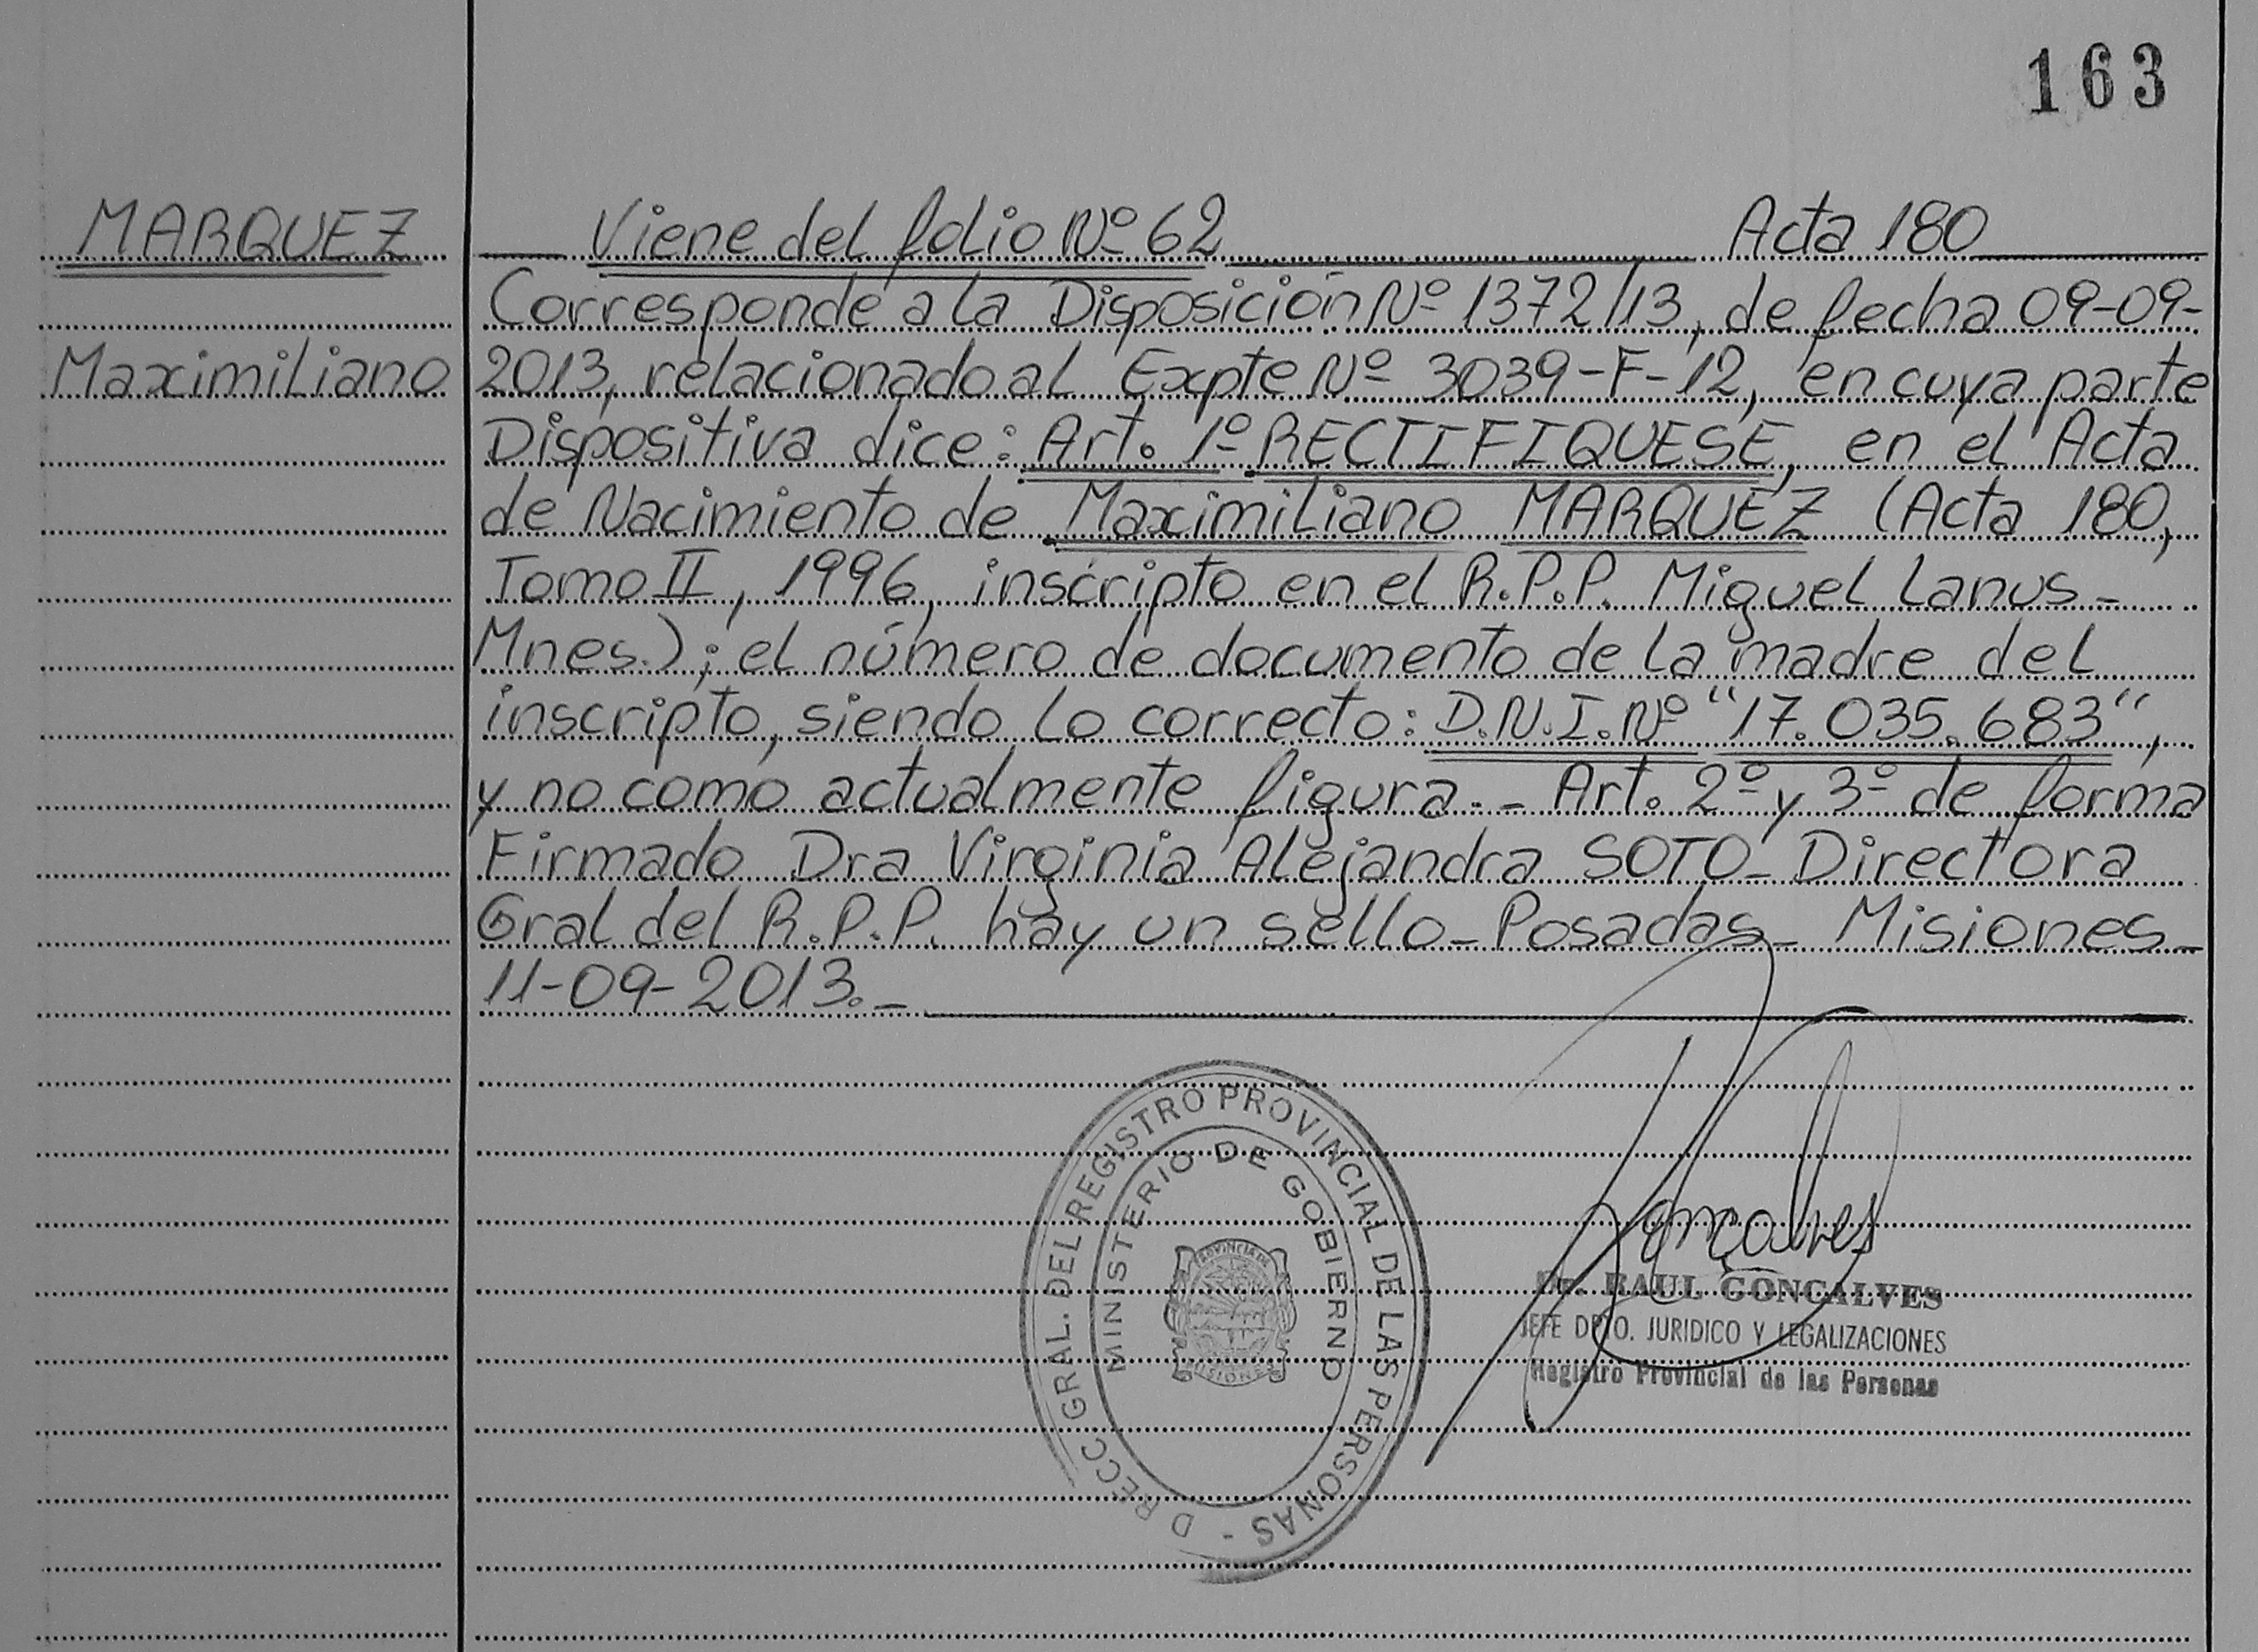 163
MARQUEZ
Maximiliano
Viene del folio Nº 62 Acta 180
Corresponde a la Disposición Nº 1372/13, de fecha 09-09-
2013, relacionado al Expte Nº 3039-F-12, en cuya parte
Dispositiva dice: Art. 1º RECTIFIQUESE, en el Acta
de Nacimiento de Maximiliano MARQUEZ (Acta 180,
Tomo II, 1996, inscripto en el R.P.P. Miguel Lanus-
Mnes.); el número de documento de la madre del
inscripto, siendo lo correcto: D.N.I. Nº "17.035.683",
y no como actualmente figura.- Art. 2º y 3º de forma
Firmado Dra Virginia Alejandra SOTO- Directora
Gral del R.P.P. hay un sello- Posadas- Misiones-
11-09-2013.-
DRECC GRAL. DEL REGISTRO PROVINCIAL DE LAS PERSONAS -
MINISTERIO DE GOBIERNO
PROVINCIA DE
MISIONES
Goncalves
Dr. RAUL GONCALVES
JEFE DPTO. JURIDICO Y LEGALIZACIONES
Registro Provincial de las Personas